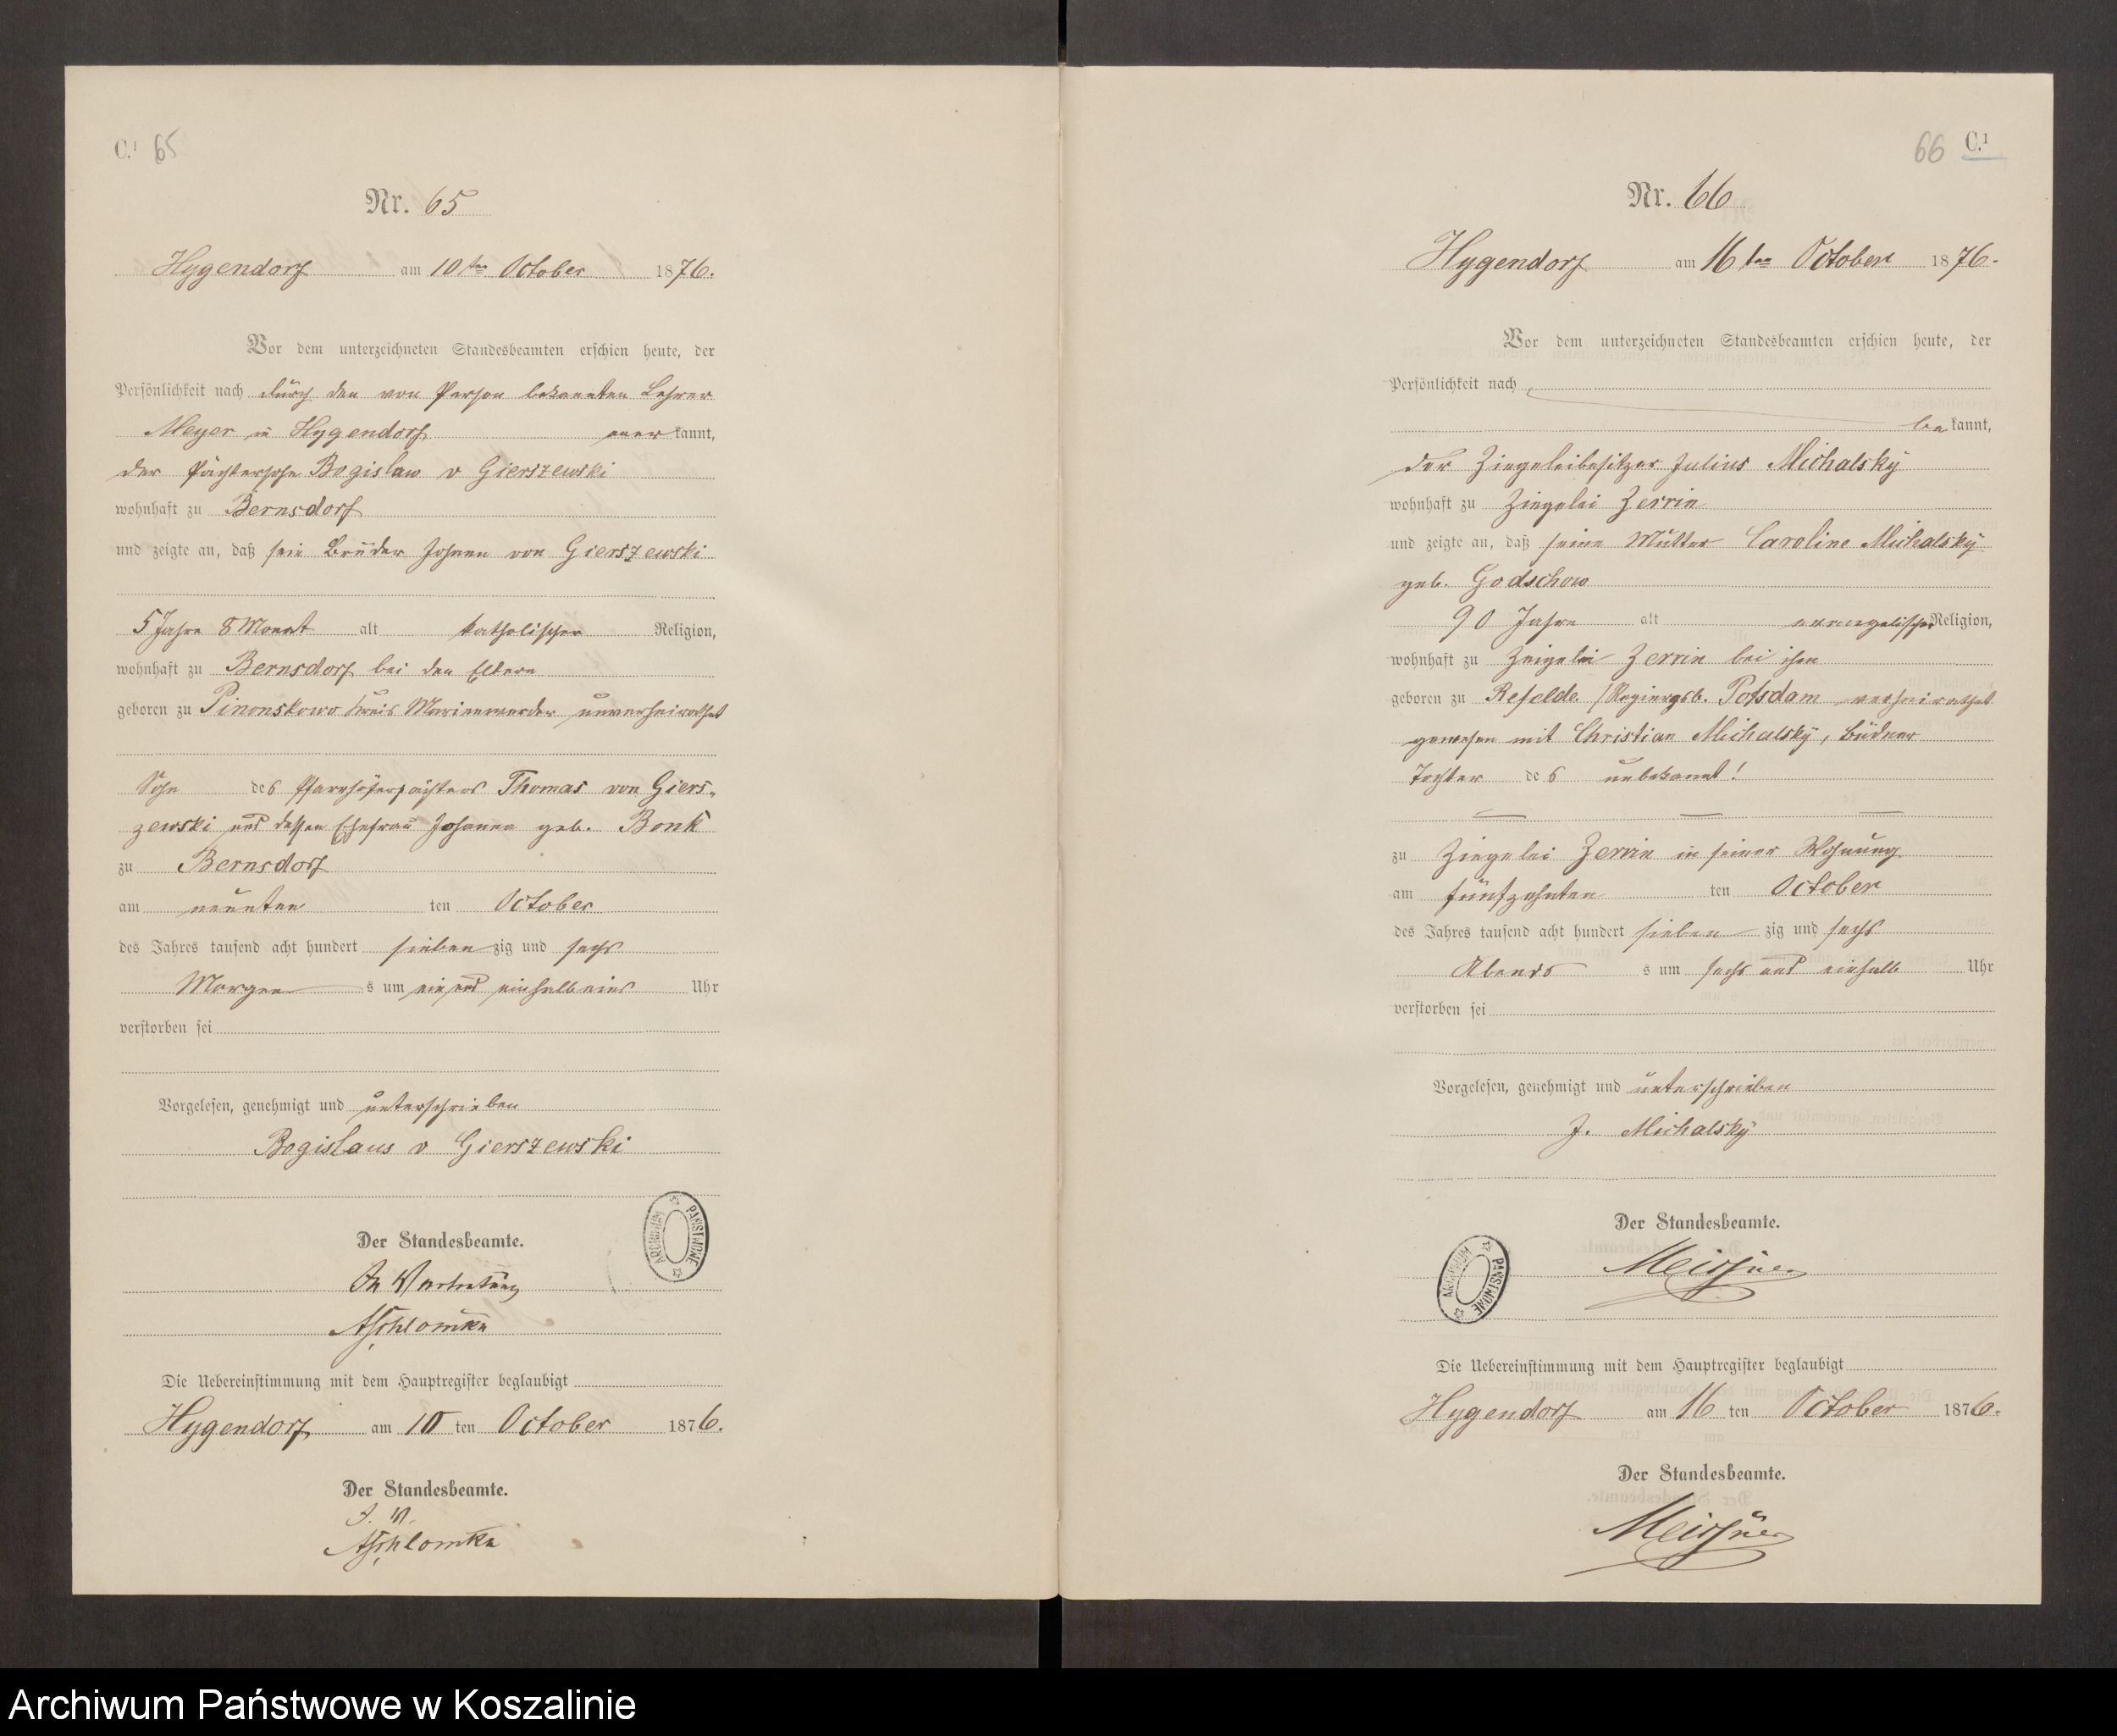 C.¹ 65
Nr. 65
Hygendorf am 10ten October 1876.
Vor dem unterzeichneten Standesbeamten erschien heute, der
Persönlichkeit nach durch den von Person bekannten Lehrer
Meyer in Hygendorf kannt,
der Pächtersohn Bogislaw v Gierszewski
wohnhaft zu Bernsdorf
und zeigte an, daß sein Bruder Johann von Gierszewski
5 Jahre 8 Monat alt katholischer Religion,
wohnhaft zu Bernsdorf bei den Eltern
geboren zu Pinonskowo Kreis Marienwerder unverheirathet
Sohn des Pfarrhöferpächters Thomas von Giers-
zewski und dessen Ehefrau Johanna geb. Bonk
zu Bernsdorf
am neunten ten October
des Jahres tausend acht hundert sieben zig und sechs
Morgen s um ein und einhalb Uhr
verstorben sei
Vorgelesen, genehmigt und unterschrieben
Bogislaus v Gierszewski
Der Standesbeamte.
In Vertretung
ARCHIWUM PAŃSTWOWE
Die Uebereinstimmung mit dem Hauptregister beglaubigt
Hygendorf am 10 ten October 1876.
Der Standesbeamte.
I. V.
66 C.¹
Nr. 66
Hygendorf am 16ten October 1876.
Vor dem unterzeichneten Standesbeamten erschien heute, der
Persönlichkeit nach
be kannt,
der Ziegeleibesitzer Julius Michalsky
wohnhaft zu Ziegelei Zerrin
und zeigte an, daß seine Mutter Caroline Michalsky
geb. Godschow
90 Jahre alt evangelischer Religion,
wohnhaft zu Zeigelei Zerrin bei ihm
geboren zu Refelde /Regiergsb. Potsdam verheirathet
gewesen mit Christian Michalsky, Büdner
Tochter des unbekannt!
zu Ziegelei Zerrin in seiner Wohnung
am fünfzehnten ten October
des Jahres tausend acht hundert sieben zig und sechs
Abends s um sechs und einhalb Uhr
verstorben sei
Vorgelesen, genehmigt und unterschrieben
J. Michalsky
Der Standesbeamte.
Meissner
ARCHIWUM PAŃSTWOWE
Die Uebereinstimmung mit dem Hauptregister beglaubigt
Hygendorf am 16 ten October 1876.
Der Standesbeamte.
Meissner
Archiwum Państwowe w Koszalinie